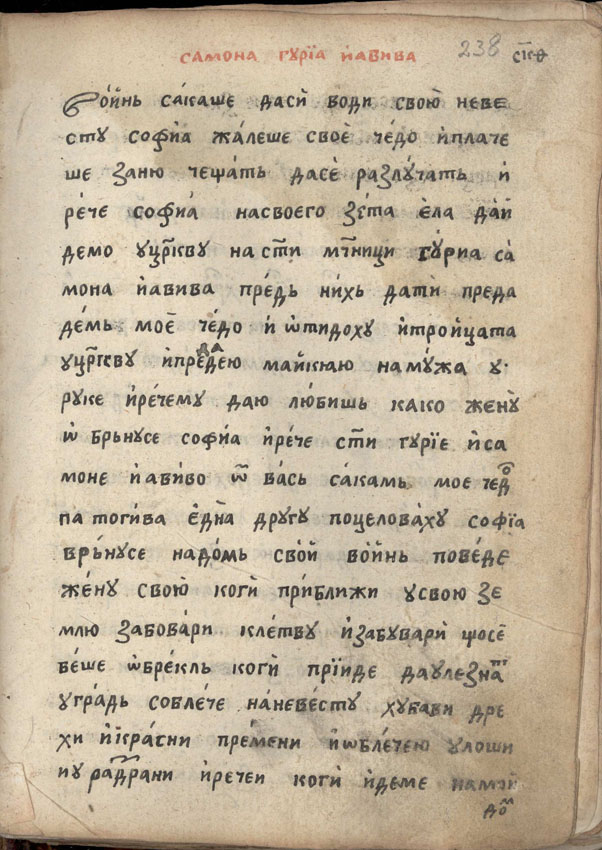 САМОНА ГУРЇА ИАВИВА 238 СК҃Ѳ
Во́йнь са́каше даси̇̀ води свою̀ неве
сту софи́а жа́леше своѐ че́до и҆плаче
ше заню чеща́ть дасѐ разлу́чать и҆
ре́че софи́а насвоего зе́та е҆ла да́й
демо уцр҃кву на ст҃и мч҃ници гу́риа са́
мона и҆авива пре́дь ни́хь дати̇̀ преда
де́мь моѐ че́до и҆ ѿтидоху и҆тро́ицата
уцр҃кву и҆предадею майкюаю на му́жа у
руке и҆ре́чему даю лю́бишь како жену̀
ѡ҆ брьнусе софи́а и҆ре́че ст҃и гурїе и҆са
моне и҆авиво ѿ ва́сь са́камь мое чедо
па тоги́ва е҆дна̀ другу поцелова́ху софїа
врьнусе надо́мь сво́й во́йнь пове́де
же́ну свою̀ коги̇̀ при́ближи у свою зе
млю забова́ри кле́тву и҆забувари̇̀ щосѐ
бе́ше ѡ҆бре́кль коги̇̀ прїиде даулезнат
угра́дь совле́че на́неве́сту хубави дре
хи и҆кра́сни премени и҆ѡбле́чею улоши
иу радрани и҆речеи коги̇̀ и҆деме намой
до́м